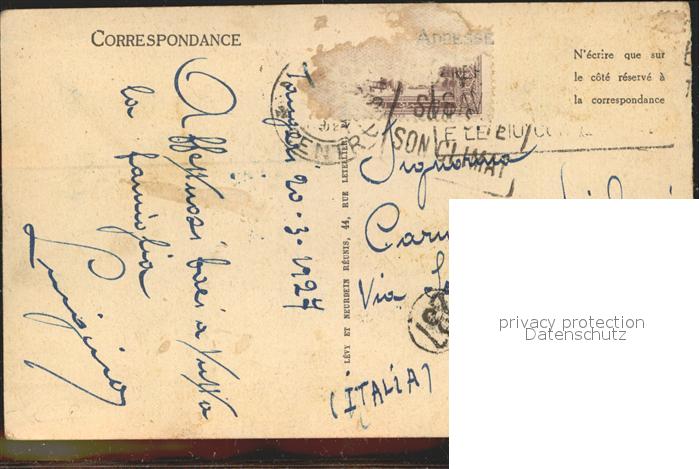 CORRESPONDANCE
ADRESSE
N'écrire que sur
le côté réservé à
la correspondance
Tangeri 20-3-1927
Affettuosi baci a tutta
la famiglia
Luigino
LÉVY ET NEURDEIN RÉUNIS, 44, RUE LETELLIER
SON CLIMAT
Signorina
Via
(ITALIA)
privacy protection
Datenschutz